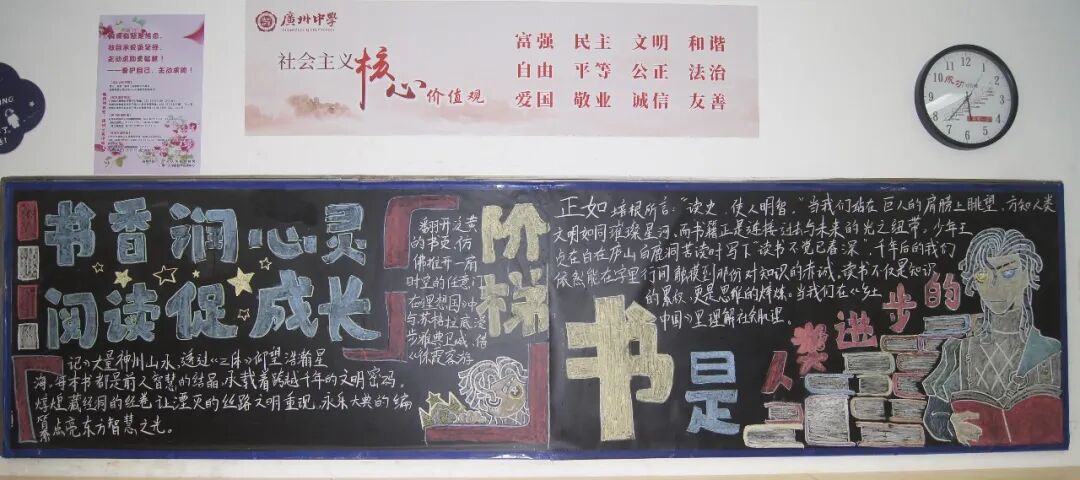 廣州中學
社会主义核心价值观
富强 民主 文明 和谐
自由 平等 公正 法治
爱国 敬业 诚信 友善
成功
12
1
2
3
4
5
6
7
8
9
10
11
书香润心灵
阅读促成长
翻开泛黄
的书页,仿
佛推开一扇
时空的任意门
在《理想国》中
与苏格拉底漫
步雅典卫城,借
《徐霞客游
记》丈量神州山水,透过《三体》仰望浩瀚星
海,每本书都是前人智慧的结晶,承载着跨越千年的文明密码。
敦煌藏经洞的经卷让湮灭的丝路文明重现,永乐大典的编
纂点亮东方智慧之光。
正如培根所言:“读史,使人明智。”当我们站在巨人的肩膀上眺望,方知人类
文明如同璀璨星河,而书籍正是连接过去与未来的光之纽带。少年王
贞白在庐山白鹿洞苦读时写下“读书不觉已春深”,千年后的我们
依然能在字里行间触摸到那份对知识的赤诚。读书不仅是知识
的累积,更是思维的淬炼。当我们在《乡土
中国》里理解社会肌理。
书是人类进步的阶梯